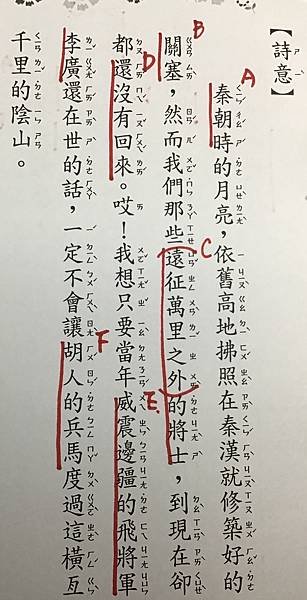 【詩意】
A
秦朝時的月亮，依舊高地拂照在秦漢就修築好的
B
關塞，然而我們那些遠征萬里之外的將士，到現在卻
C
D
都還沒有回來。哎！我想只要當年威震邊疆的飛將軍
E
李廣還在世的話，一定不會讓胡人的兵馬度過這橫亙
F
千里的陰山。